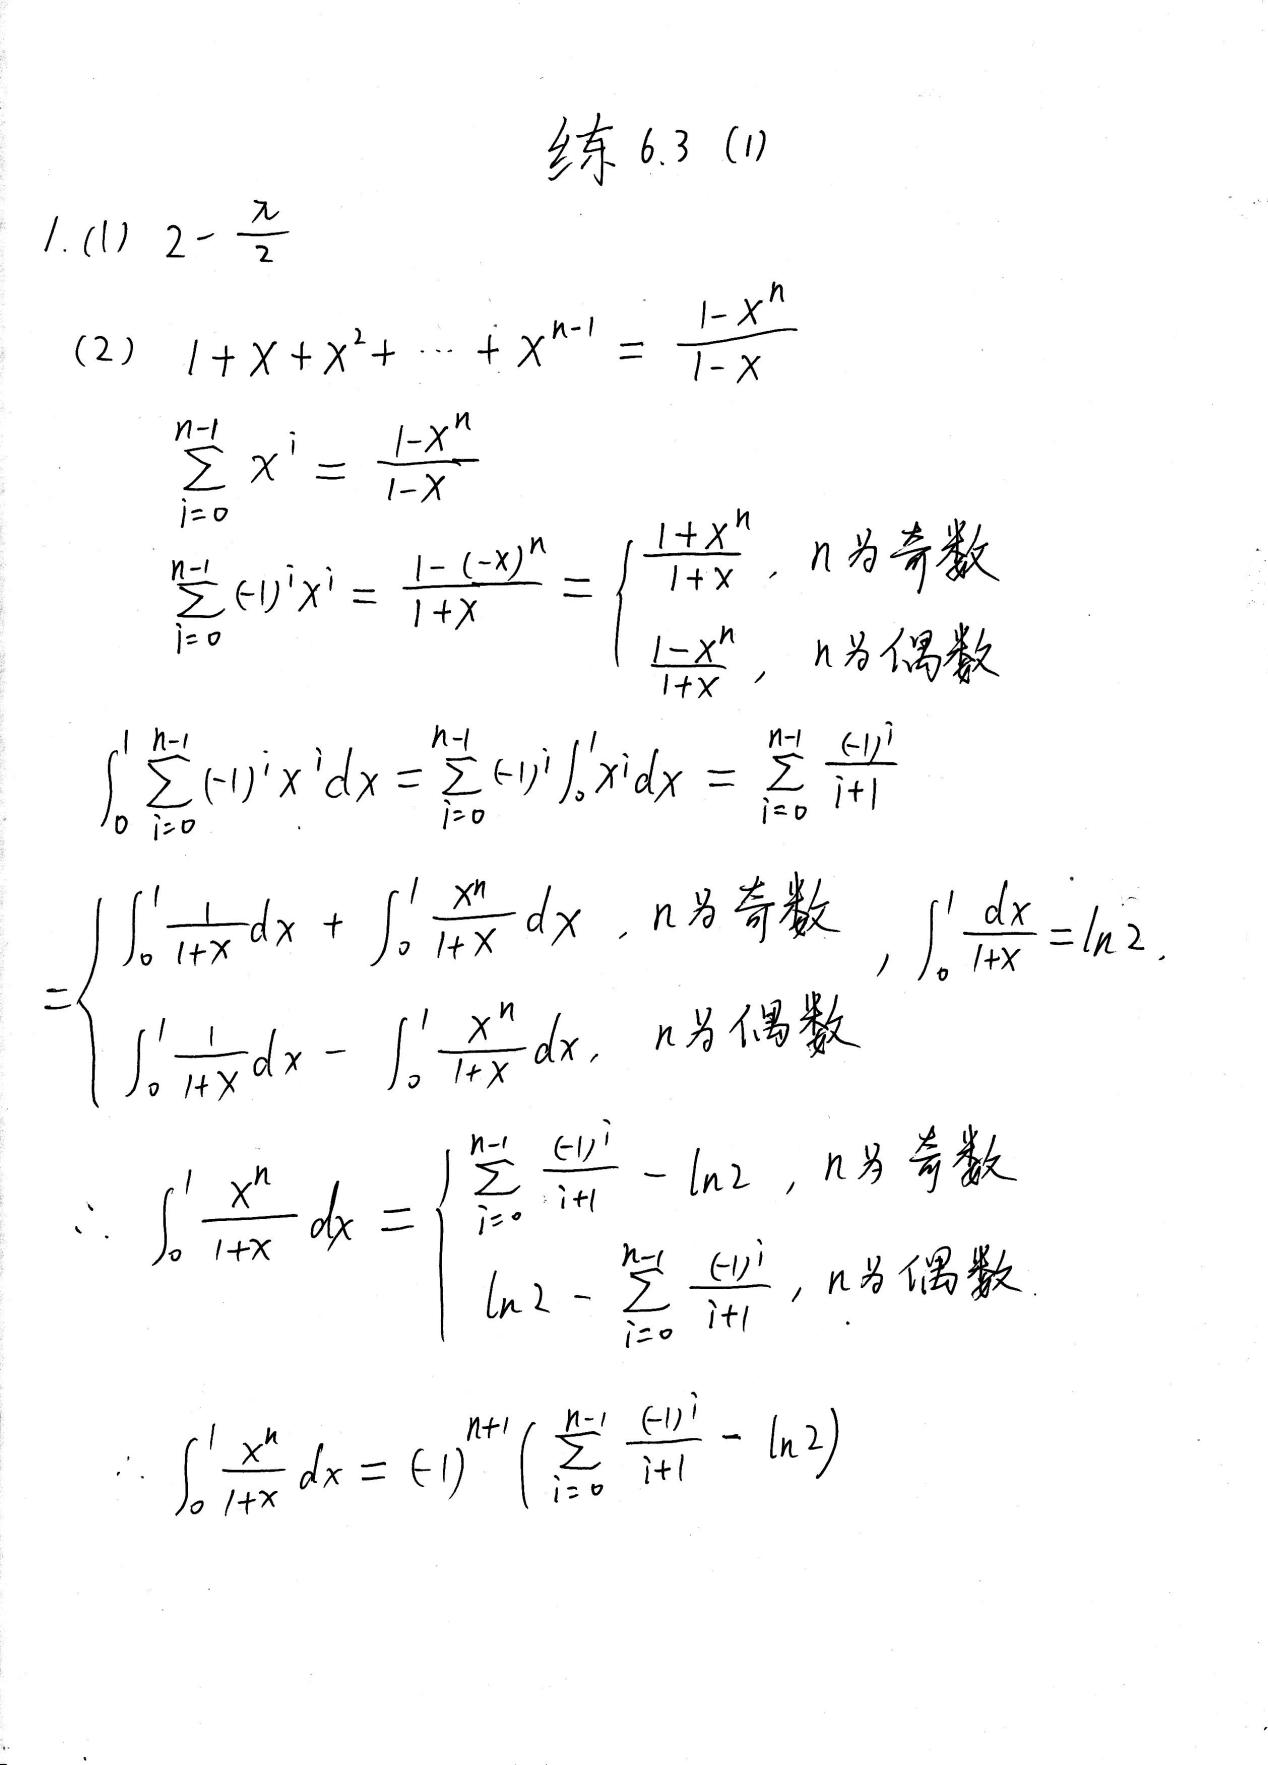 练 6.3 (1)
1. (1) 2 - \frac{\pi}{2}
(2) 1+x+x^2+\cdots+x^{n-1} = \frac{1-x^n}{1-x}
\sum_{i=0}^{n-1} x^i = \frac{1-x^n}{1-x}
\sum_{i=0}^{n-1} (-1)^i x^i = \frac{1-(-x)^n}{1+x} = \begin{cases} \frac{1+x^n}{1+x}, n为奇数 \\ \frac{1-x^n}{1+x}, n为偶数 \end{cases}
\int_0^1 \sum_{i=0}^{n-1} (-1)^i x^i dx = \sum_{i=0}^{n-1} (-1)^i \int_0^1 x^i dx = \sum_{i=0}^{n-1} \frac{(-1)^i}{i+1}
= \begin{cases} \int_0^1 \frac{1}{1+x} dx + \int_0^1 \frac{x^n}{1+x} dx, n为奇数 \\ \int_0^1 \frac{1}{1+x} dx - \int_0^1 \frac{x^n}{1+x} dx, n为偶数 \end{cases}, \int_0^1 \frac{dx}{1+x} = \ln 2.
∴ \int_0^1 \frac{x^n}{1+x} dx = \begin{cases} \sum_{i=0}^{n-1} \frac{(-1)^i}{i+1} - \ln 2, n为奇数 \\ \ln 2 - \sum_{i=0}^{n-1} \frac{(-1)^i}{i+1}, n为偶数. \end{cases}
∴ \int_0^1 \frac{x^n}{1+x} dx = (-1)^{n+1} \left( \sum_{i=0}^{n-1} \frac{(-1)^i}{i+1} - \ln 2 \right)